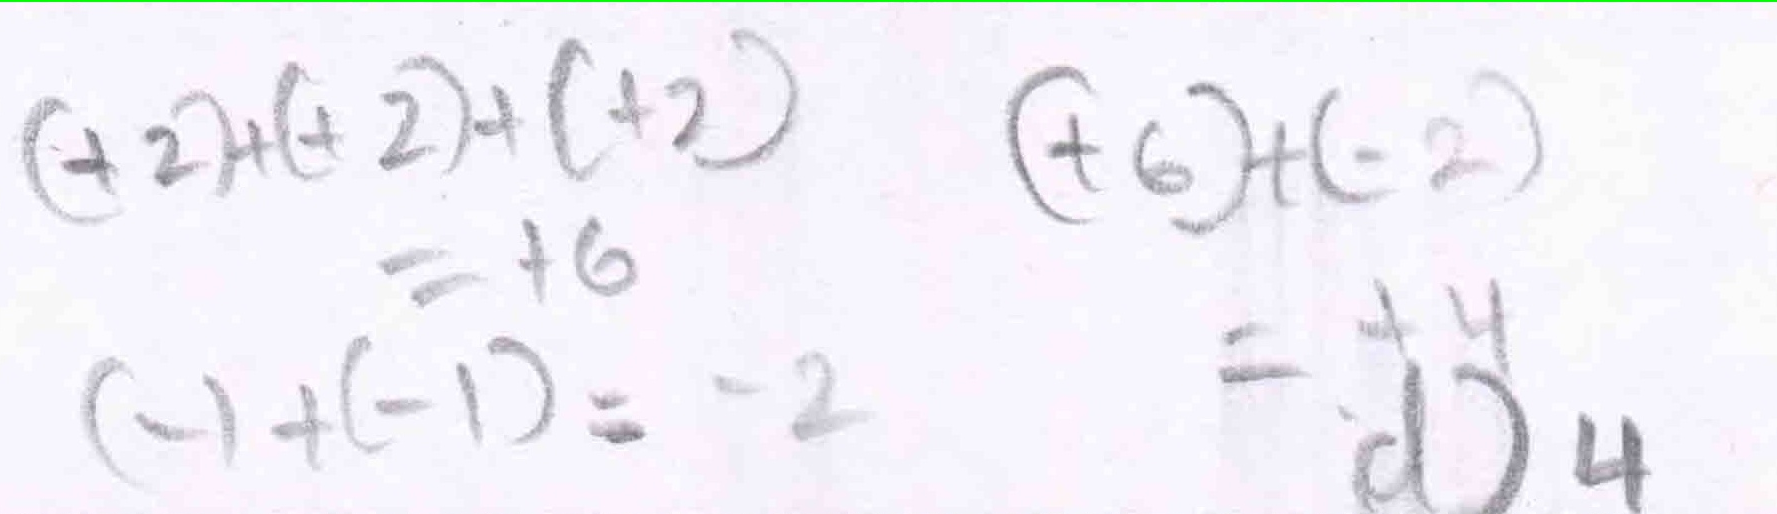 (+2)+(+2)+(+2)
= +6
(-1+(-1) = -2
(+6)+(-2)
= +4
d) 4